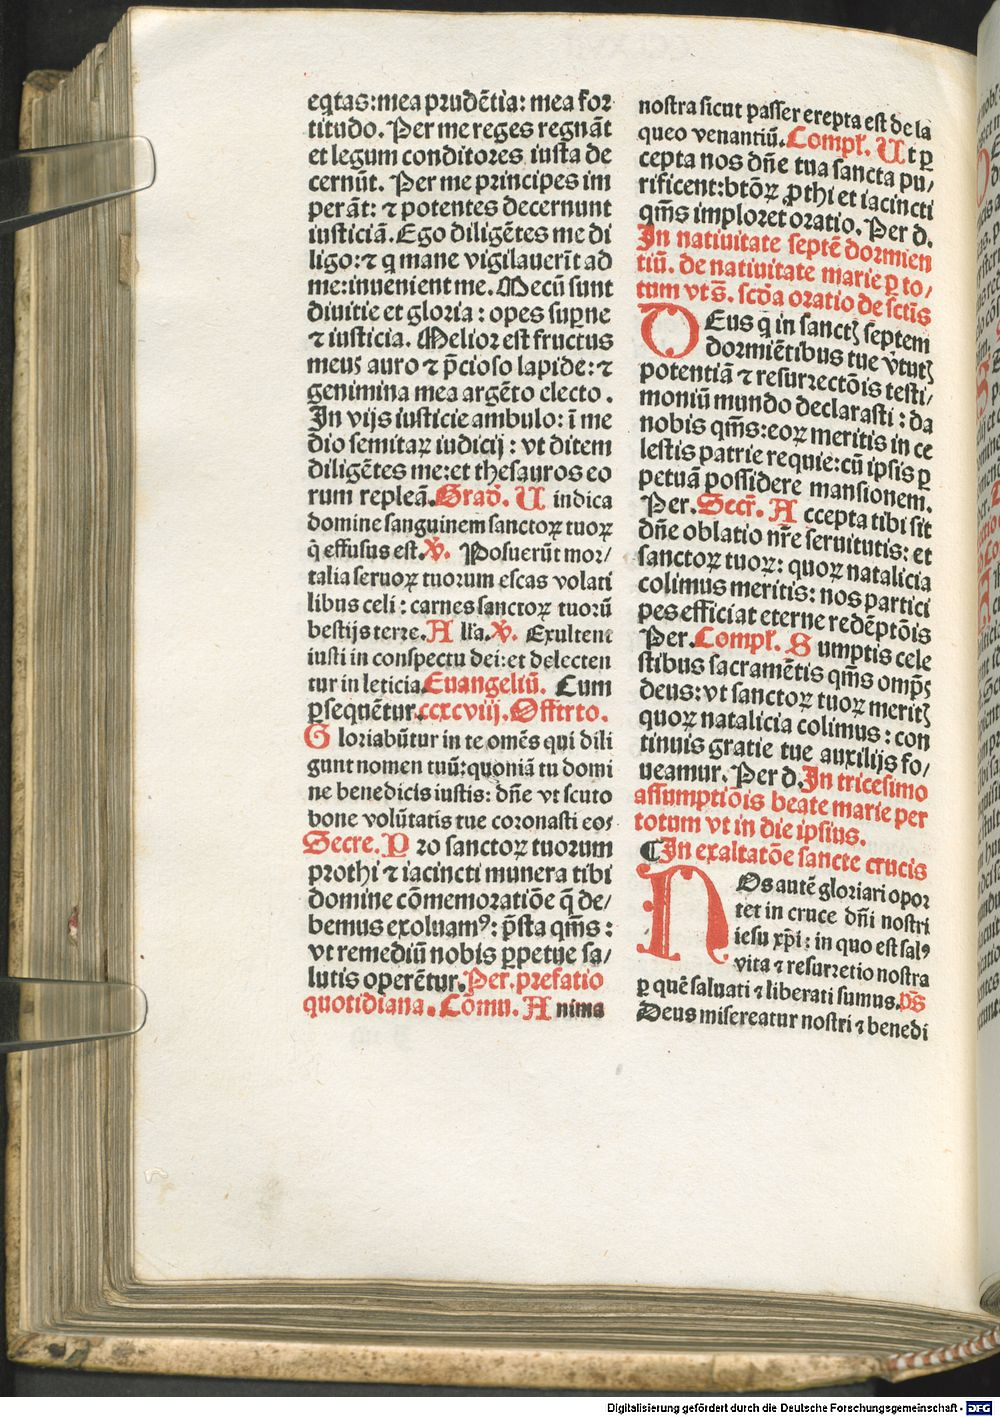 eqtas: mea prudētia: mea for
titudo. Per me reges regnāt
et legum conditores iusta de
cernūt. Per me principes im
perāt: ⁊ potentes decernunt
iusticiā. Ego diligētes me di
ligo: ⁊ q mane vigilauerīt ad
me: inuenient me. Mecū sunt
diuitie et gloria: opes suꝑne
⁊ iusticia. Melior est fructus
meus auro ⁊ p̄cioso lapide: ⁊
genimina mea argēto electo.
In vijs iusticie ambulo: ī me
dio semitaꝝ iudicij: vt ditem
diligētes me: et thesauros eo
rum repleā. Grad̄. U indica
domine sanguinem sanctoꝝ tuoꝝ
q̄ effusus est. V̄. Posuerūt mor/
talia seruoꝝ tuorum escas volati
libus celi: carnes sanctoꝝ tuorū
bestijs terre. A lľa. V̄. Exultent
iusti in conspectu dei: et delecten
tur in leticia. Euangeliū. Cum
ꝑsequētur. ccxcviij. Offirto.
G loriabūtur in te omēs qui dili
gunt nomen tuū: quoniā tu domi
ne benedicis iustis: dn̄e vt scuto
bone volūtatis tue coronasti eos
Secre. P ro sanctoꝝ tuorum
prothi ⁊ iacincti munera tibi
domine cōmemoratiōe q̄ de/
bemus exoluamꝰ: p̄sta qm̄s:
vt remediū nobis ꝑpetue sa/
lutis operētur. Per. prefatio
quotidiana. Cōmu. A nima
nostra sicut passer erepta est de la
queo venantiū. Compľ. U t ꝑ
cepta nos dn̄e tua sancta pu/
rificent: btōꝝ ꝓthi et iacincti
qm̄s imploret oratio. Per d.
In natiuitate septē dormien
tiū. de natiuitate marie ꝑ to/
tum vt s̄. scd̄a oratio de sctīs
DEus q̄ in sanctꝭ septem
dormiētibus tue v̄tutꝭ
potentiā ⁊ resurrectōis testi/
moniū mundo declarasti: da
nobis qm̄s: eoꝝ meritis in ce
lestis patrie requie: cū ipsis ꝑ
petuā possidere mansionem.
Per. Secr̄. A ccepta tibi sit
dn̄e oblatio nr̄e seruitutis: et
sanctoꝝ tuoꝝ: quoꝝ natalicia
colimus meritis: nos partici
pes efficiat eterne redēptōis
Per. Compľ. S umptis cele
stibus sacramētis qm̄s omp̄s
deus: vt sanctoꝝ tuoꝝ meritꝭ
quoꝝ natalicia colimus: con
tinuis gratie tue auxilijs fo/
ueamur. Per d. In tricesimo
assumptiōis beate marie per
totum vt in die ipsius.
¶In exaltatōe sancte crucis
NOs autē gloriari opor
tet in cruce dn̄i nostri
iesu xp̄i: in quo est salꝰ
vita ⁊ resurretio nostra
ꝑ quē saluati ⁊ liberati sumus. p̄s
Deus misereatur nostri ⁊ benedi
Digitalisierung gefördert durch die Deutsche Forschungsgemeinschaft - DFG